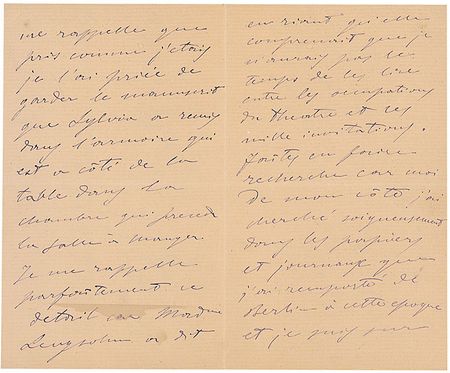 me rappelle que
pris comme j'étais
je l'ai priée de
garder le manuscrit
que Sylvia a remis
dans l'armoire qui
est a côté de la
table dans la
chambre qui précède
la salle à manger.
Je me rappelle
parfaitement ce
detail car Madme
a dit
en riant qu'elle
comprenait que je
n'aurais pas le
temps de les lire
entre les occupations
du theatre et les
mille invitations.
Faites en faire
recherche car moi
de mon côté j'ai
cherché soigneusement
dans les papiers
et journaux que
j'ai remporté de
Berlin à cette époque
et je suis sur